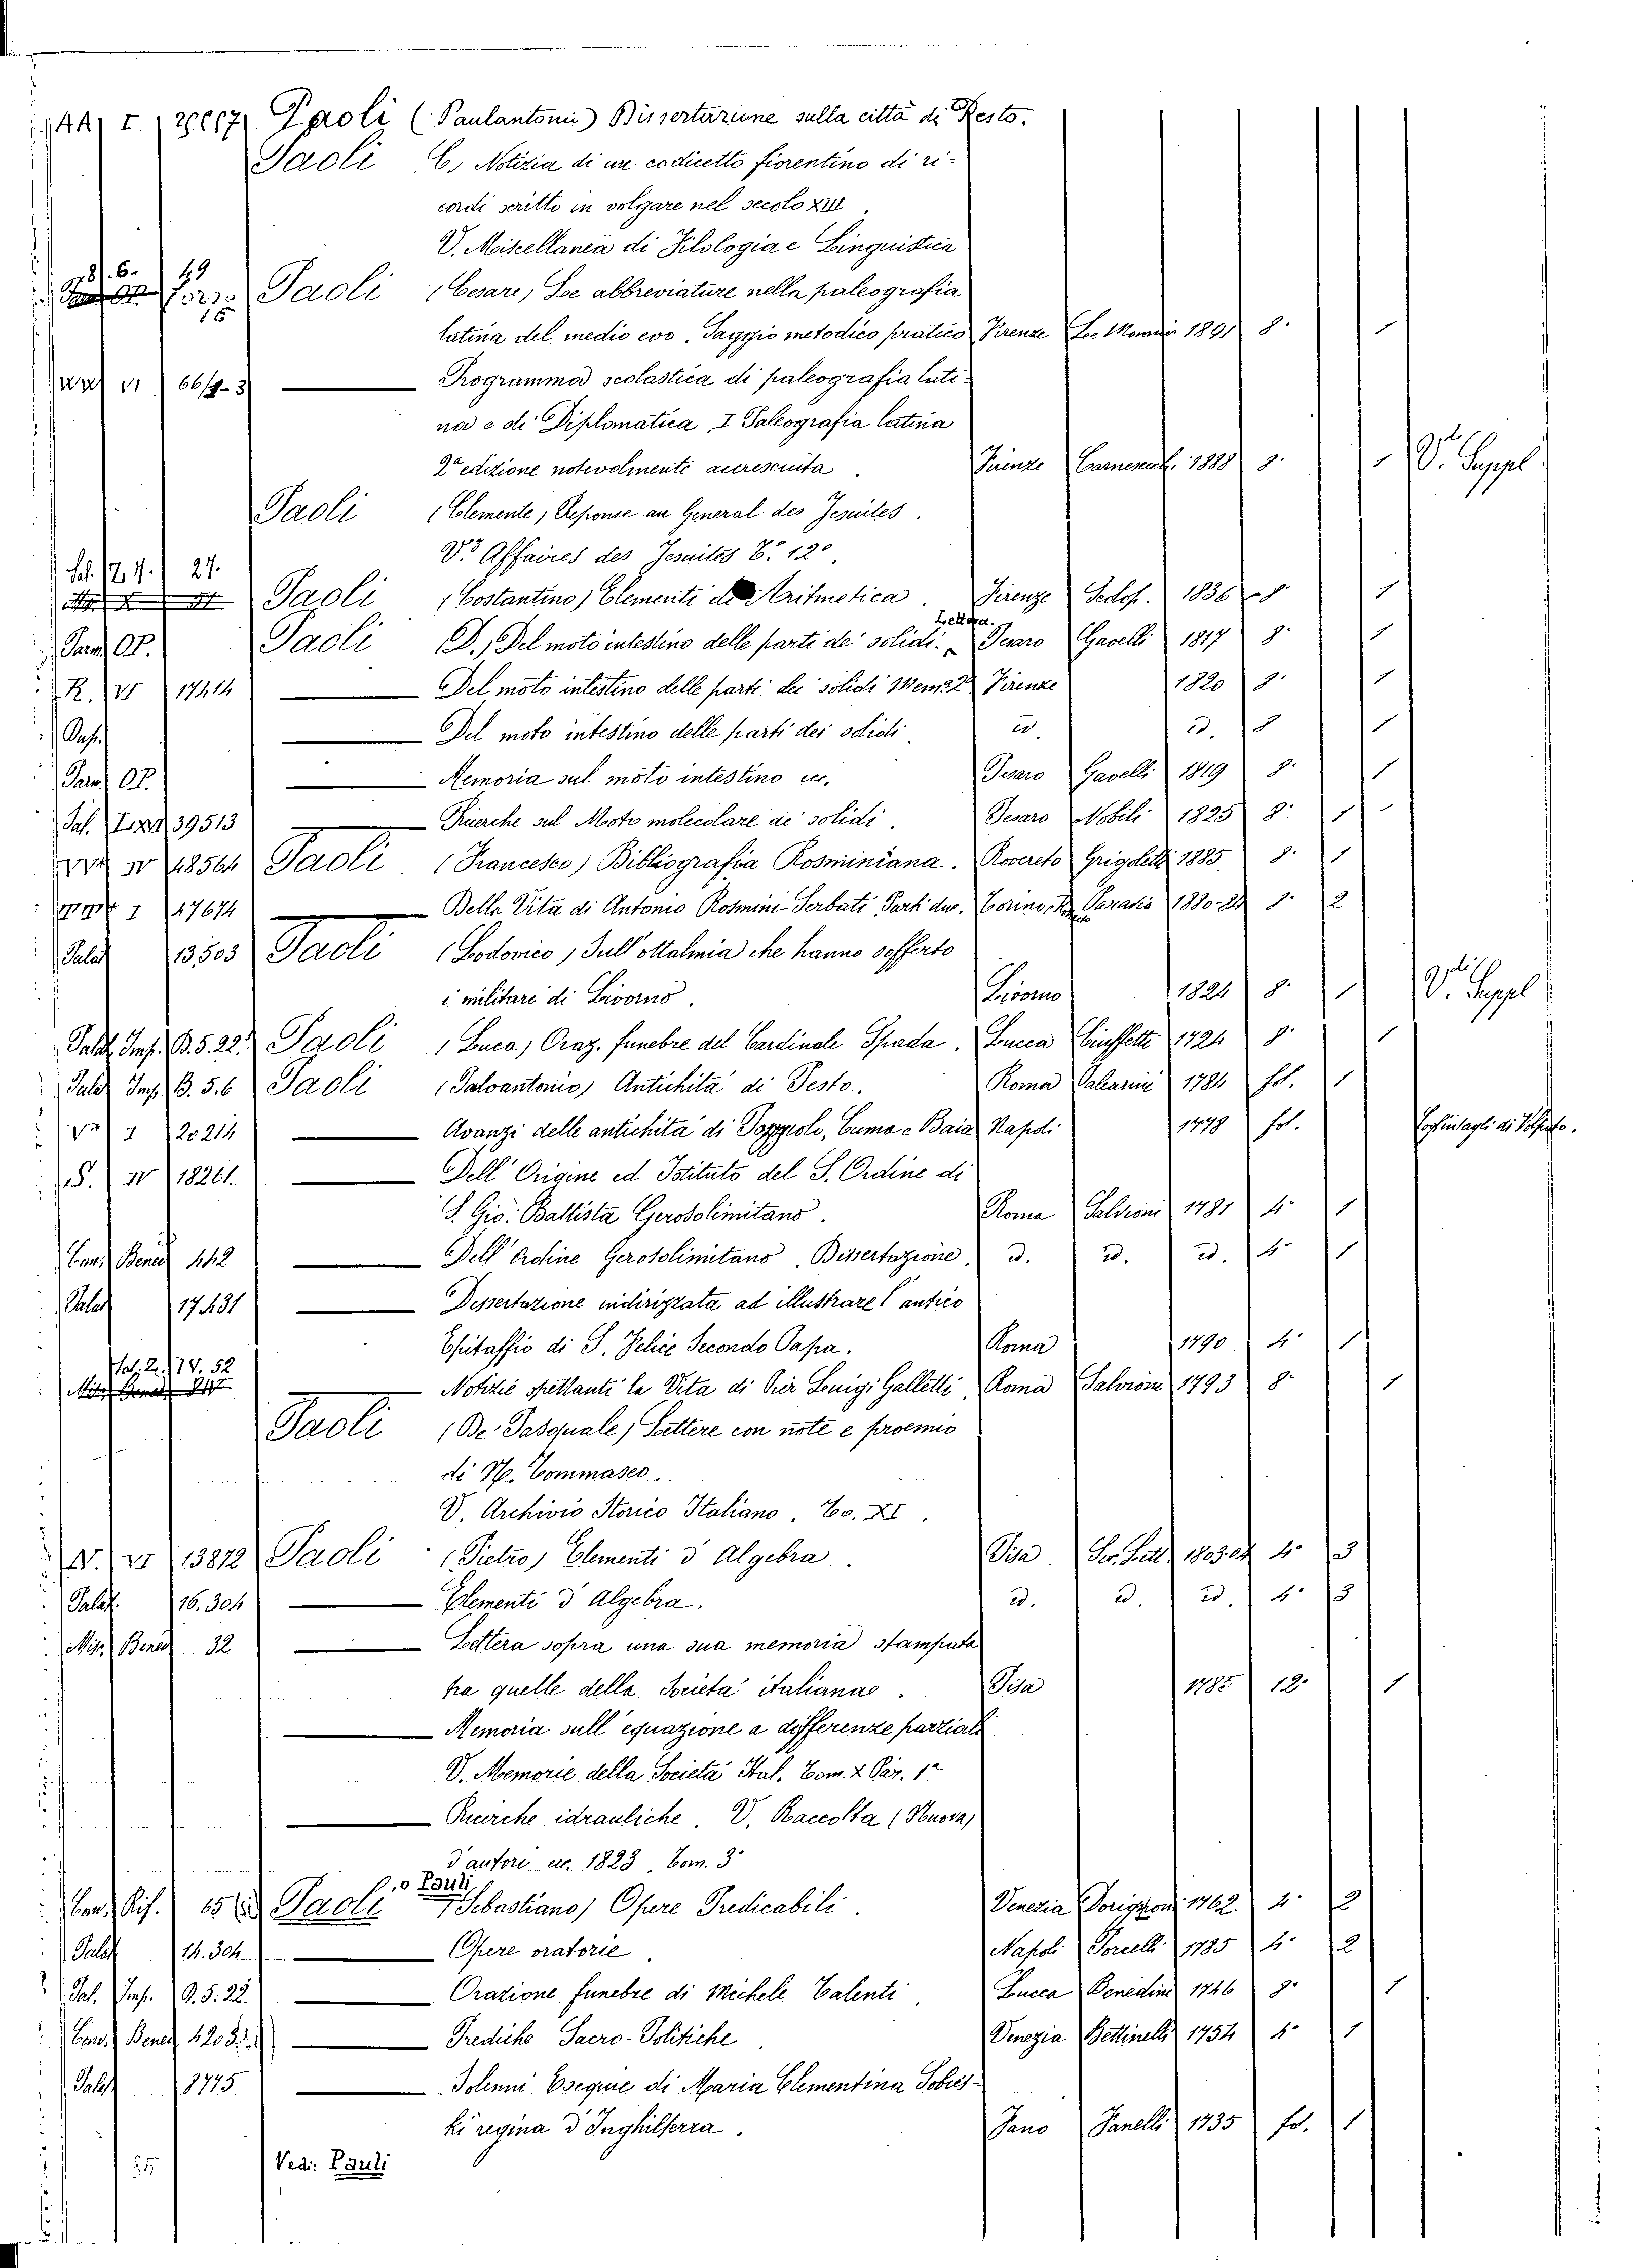 Paoli (Paulantonii) Dissertazione sulla città di Pesto.
Paoli C. Notizia di un codicetto fiorentino di ri-
cordi scritto in volgare nel secolo XIII.
V. Miscellanea di Filologia e Linguistica
Paoli (Cesare) Le abbreviature nella paleografia
latina del medio evo. Saggio metodico pratico Firenze Le Monnier 1891 8. 1
66/4-3 Programma scolastica di paleografia lati-
na e di Diplomatica, I Paleografia latina
2ª edizione notevolmente accresciuta. Firenze 1888 8. 1 V. Suppl
Paoli (Clemente) Reponse au General des Jesuites.
V. Affaires des Jesuites T. 12°.
27. Paoli (Costantino) Elementi di Aritmetica. Firenze 1836 8. 1
Paoli D. Del moto intestino delle parti de' solidi. Lettera. Pesaro Gavelli 1817 8. 1
R. Del moto intestino delle parti dei solidi Mem. 2ª Firenze 1820 8. 1
Del moto intestino delle parti dei solidi id. id. 8 1
Memoria sul moto intestino ec. Pesaro Gavelli 1819 8. 1
39513 Ricerche sul Moto molecolare de' solidi. Pesaro Nobili 1825 8. 1
Paoli (Francesco) Bibliografia Rosminiana. Rovereto Grigoletti 1885 8. 1
47674 Della Vita di Antonio Rosmini-Serbati Parti due. Torino Paravia 1880-84 8. 2
Palat 13,503 Paoli (Lodovico) Sull'ottalmia che hanno sofferto
i militari di Livorno. Livorno 1824 8. 1 V. Suppl
Palat Imp. B.5.22. Paoli (Luca) Oraz. funebre del Cardinale Spada. Lucca Ciuffetti 1724 8. 1
Palat Imp. B. 5.6 Paoli (Paloantonio) Antichità di Pesto. Roma 1784 fol. 1
20214 Avanzi delle antichità di Pozzuolo, Cuma e Baia Napoli fol.
S. IV 18261. Dell'Origine ed Istituto del S. Ordine di
S. Gio. Battista Gerosolimitano. Roma Salvioni 1781 4. 1
Dell'Ordine Gerosolimitano. Dissertazione. id. id. id. 4. 1
Palat 17431 Dissertazione indirizzata ad illustrare l'antico
Epitaffio di S. Felice Secondo Papa. Roma 1790 4. 1
Notizie spettanti la Vita di Pier Luigi Galletti, Roma Salvioni 1793 8. 1
Paoli (De' Pasquale) Lettere con note e proemio
di N. Tommaseo.
V. Archivio Storico Italiano. To. XI.
13872 Paoli (Pietro) Elementi d'Algebra. Pisa 4. 3
Palat. 16.304 Elementi d'Algebra. id. id. id. 4. 3
Mis. Bened. 32 Lettera sopra una sua memoria stampata
tra quelle della Società italiana. Pisa 1785 12. 1
Memoria sull'equazione a differenze parziali
V. Memorie della Società Ital. Tom. X Par. 1ª
Ricerche idrauliche. V. Raccolta (Nuova)
d'autori ec. 1823. Tom. 3°
Paoli o Pauli (Sebastiano) Opere Predicabili. Venezia 1762. 4. 2
Palat 14.304 Opere oratorie. Napoli Porcelli 1785 4. 2
Pal. Imp. Orazione funebre di Michele Talenti. Lucca Benedini 1746 8. 1
Prediche Sacro-Politiche. Venezia Bettinelli 1754 4. 1
Palat 8775 Solenni Esequie di Maria Clementina Sobies-
ki regina d'Inghilterra. Fano Fanelli 1735 fo. 1
Vedi: Pauli